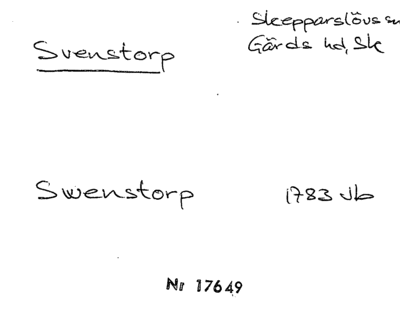 Svenstorp
Skepparslövs sn
Gärds hd, Sk
Swenstorp 1783 Jb
Nr 17649